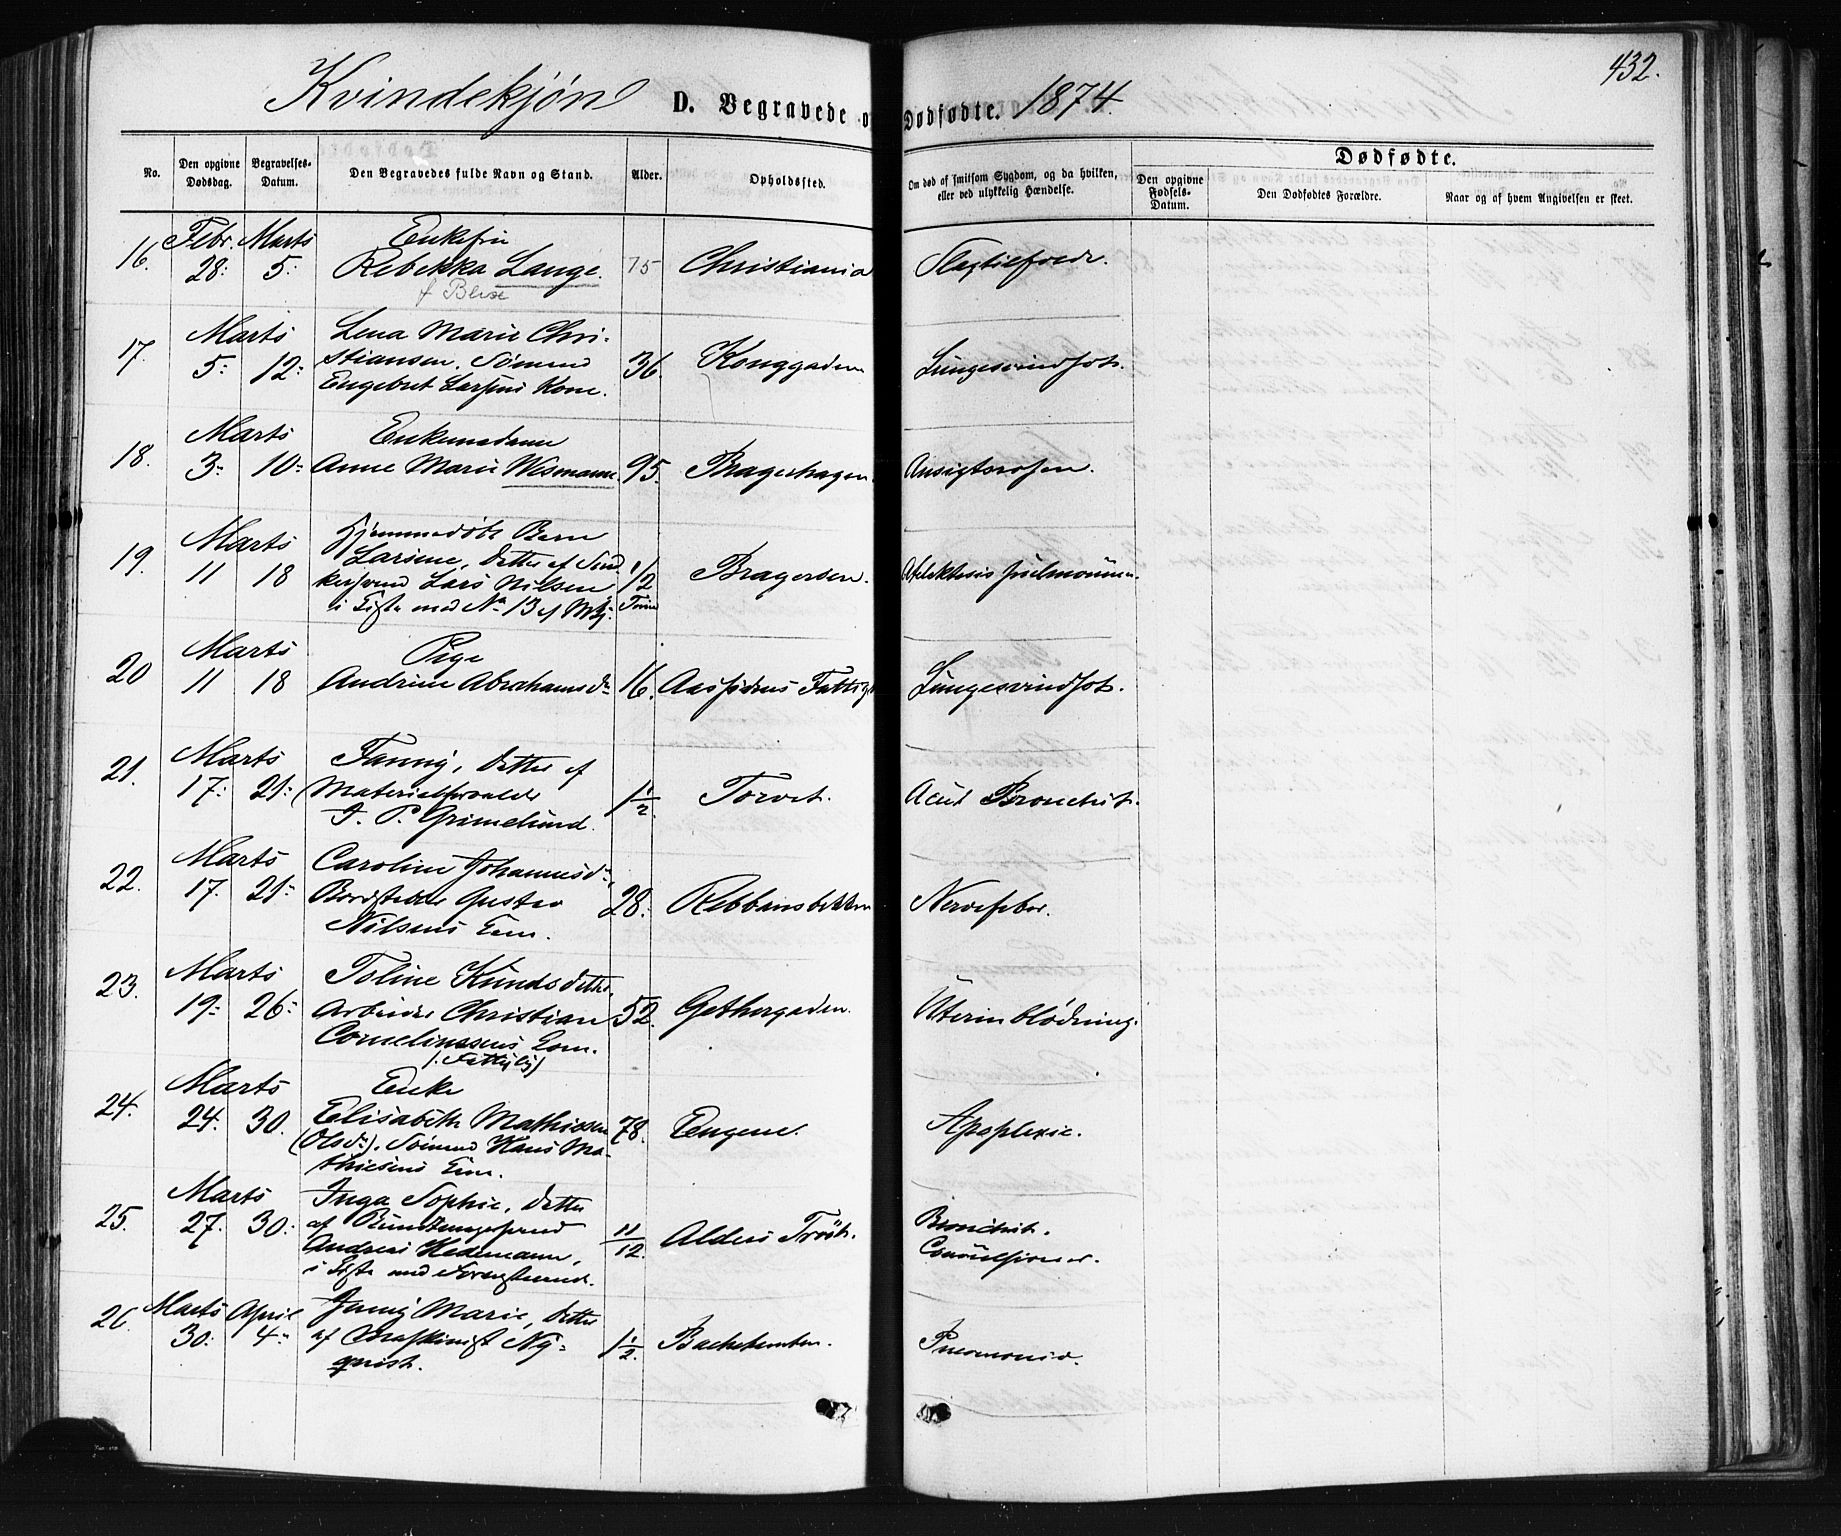 432.
Kvindekjøn D. Begravede o Dødfødte. 1874.
No. Den opgivne Dødsdag. Begravelses-Datum. Den Begravedes fulde Navn og Stand. Alder. Opholdssted. Om død af smitsom Sygdom, og da hvilken, eller ved ulykkelig Hændelse. Dødfødte.
Den opgivne Fødsels-Datum. Den Dødfødtes Forældre. Naar og af hvem Angivelsen er skeet.
Febr. Marts Enkefru
16. 28: 5: Rebekka Lange. 75 Christiania
Marts Lena Marie Chri-
17. 5: 12: stiansen, Sömand 36. Konggaden Lungesvindsot.
Engebret Larsens Kone.
Marts Enkemadame
18. 3: 10: Anne Marie Wismann. 95. Bragerhagen Ansigtsrosen.
Marts Hjemmedøbt Barn
19. 11 18 Larsine, Datter af
Lars Nilsen 1/2 Time Bragersøen. Atelektasis pulmonum.
i Kiste med No 13 af Mkj.
Marts Pige
20 11 18 Andrine Abrahamsdr 16. Aassidens Fattigv Lungesvindsot.
Marts Fanny, Datter af
21. 17: 21: Materialforvalter 1 1/2 Torvet. Acut Bronchit.
J. P. Grimelund.
Marts Caroline Johannesdr,
22. 17. 21: Gustav 28: Rebbansbakken Nervefeber.
Nilsens Enn.
Marts Toline Knudsdatter,
23. 19: 26: Arbeider Christian 52. Gethergaden. Uterinblödning.
Corneliussens Kone.
Marts Enke
24. 24. 30. Elisabeth Mathiesen 78. Engene. Apoplexie.
(Olsdr), Sömand Hans Ma-
thiesens Enn.
Marts Inga Sophie, Datter
25. 27. 30: af Buntmagersvend 11/12. Alders Trøst. Bronchit.
Andreas Hedemann, Convulsioner.
Marts April Jenny Marie, Datter
26. 30: 4: af Maskinist Ny- 1 1/2. Bachetomten. Pneumonie.
quist.